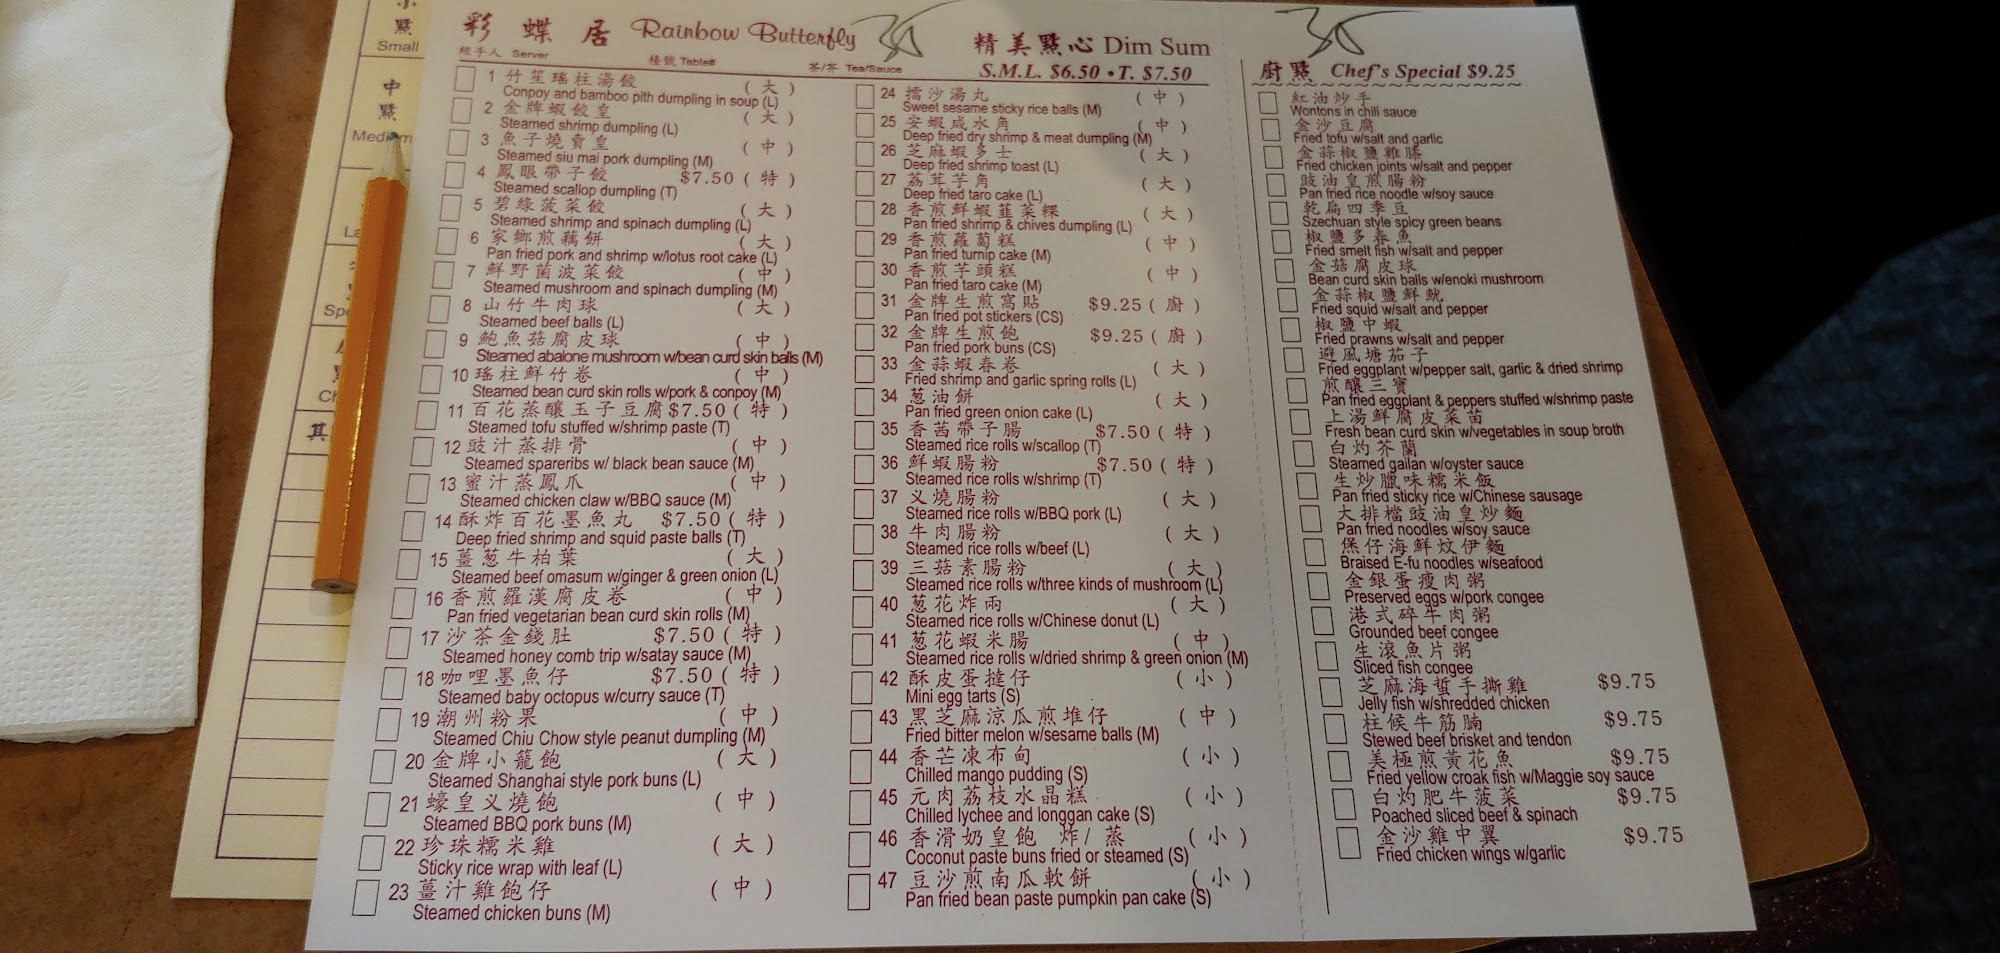 小
點
Small
中
點
Medium
其
彩蝶居 Rainbow Butterfly 35
經手人 Server 檯號 Table# 茶/芥 Tea/Sauce
精美點心 Dim Sum
S.M.L. $6.50 • T. $7.50
1 竹笙瑤柱湯餃 (大)
Conpoy and bamboo pith dumpling in soup (L)
2 金牌蝦餃皇 (大)
Steamed shrimp dumpling (L)
3 魚子燒賣皇 (中)
Steamed siu mai pork dumpling (M)
4 鳳眼帶子餃 $7.50 (特)
Steamed scallop dumpling (T)
5 碧綠菠菜餃 (大)
Steamed shrimp and spinach dumpling (L)
6 家鄉煎藕餅 (大)
Pan fried pork and shrimp w/lotus root cake (L)
7 鮮野菌菠菜餃 (中)
Steamed mushroom and spinach dumpling (M)
8 山竹牛肉球 (大)
Steamed beef balls (L)
9 鮑魚菇腐皮球 (中)
Steamed abalone mushroom w/bean curd skin balls (M)
10 瑤柱鮮竹卷 (中)
Steamed bean curd skin rolls w/pork & conpoy (M)
11 百花蒸釀玉子豆腐 $7.50 (特)
Steamed tofu stuffed w/shrimp paste (T)
12 豉汁蒸排骨 (中)
Steamed spareribs w/ black bean sauce (M)
13 蜜汁蒸鳳爪 (中)
Steamed chicken claw w/BBQ sauce (M)
14 酥炸百花墨魚丸 $7.50 (特)
Deep fried shrimp and squid paste balls (T)
15 薑葱牛柏葉 (大)
Steamed beef omasum w/ginger & green onion (L)
16 香煎羅漢腐皮卷 (中)
Pan fried vegetarian bean curd skin rolls (M)
17 沙茶金錢肚 $7.50 (特)
Steamed honey comb trip w/satay sauce (M)
18 咖哩墨魚仔 $7.50 (特)
Steamed baby octopus w/curry sauce (T)
19 潮州粉果 (中)
Steamed Chiu Chow style peanut dumpling (M)
20 金牌小籠飽 (大)
Steamed Shanghai style pork buns (L)
21 蠔皇义燒飽 (中)
Steamed BBQ pork buns (M)
22 珍珠糯米雞 (大)
Sticky rice wrap with leaf (L)
23 薑汁雞飽仔 (中)
Steamed chicken buns (M)
24 擂沙湯丸 (中)
Sweet sesame sticky rice balls (M)
25 安蝦咸水角 (中)
Deep fried dry shrimp & meat dumpling (M)
26 芝麻蝦多士 (大)
Deep fried shrimp toast (L)
27 荔茸芋角 (大)
Deep fried taro cake (L)
28 香煎鮮蝦韮菜粿 (大)
Pan fried shrimp & chives dumpling (L)
29 香煎蘿蔔糕 (中)
Pan fried turnip cake (M)
30 香煎芋頭糕 (中)
Pan fried taro cake (M)
31 金牌生煎窩貼 $9.25 (廚)
Pan fried pot stickers (CS)
32 金牌生煎飽 $9.25 (廚)
Pan fried pork buns (CS)
33 金蒜蝦春卷 (大)
Fried shrimp and garlic spring rolls (L)
34 葱油餅 (大)
Pan fried green onion cake (L)
35 香茜帶子腸 $7.50 (特)
Steamed rice rolls w/scallop (T)
36 鮮蝦腸粉 $7.50 (特)
Steamed rice rolls w/shrimp (T)
37 义燒腸粉 (大)
Steamed rice rolls w/BBQ pork (L)
38 牛肉腸粉 (大)
Steamed rice rolls w/beef (L)
39 三菇素腸粉 (大)
Steamed rice rolls w/three kinds of mushroom (L)
40 葱花炸兩 (大)
Steamed rice rolls w/Chinese donut (L)
41 葱花蝦米腸 (中)
Steamed rice rolls w/dried shrimp & green onion (M)
42 酥皮蛋撻仔 (小)
Mini egg tarts (S)
43 黑芝麻涼瓜煎堆仔 (中)
Fried bitter melon w/sesame balls (M)
44 香芒凍布甸 (小)
Chilled mango pudding (S)
45 元肉荔枝水晶糕 (小)
Chilled lychee and longgan cake (S)
46 香滑奶皇飽 炸/蒸 (小)
Coconut paste buns fried or steamed (S)
47 豆沙煎南瓜軟餅 (小)
Pan fried bean paste pumpkin pan cake (S)
35
廚點 Chef's Special $9.25
紅油炒手
Wontons in chili sauce
金沙豆腐
Fried tofu w/salt and garlic
金蒜椒鹽雞膝
Fried chicken joints w/salt and pepper
豉油皇煎腸粉
Pan fried rice noodle w/soy sauce
乾扁四季豆
Szechuan style spicy green beans
椒鹽多春魚
Fried smelt fish w/salt and pepper
金菇腐皮球
Bean curd skin balls w/enoki mushroom
金蒜椒鹽鮮魷
Fried squid w/salt and pepper
椒鹽中蝦
Fried prawns w/salt and pepper
避風塘茄子
Fried eggplant w/pepper salt, garlic & dried shrimp
煎釀三寶
Pan fried eggplant & peppers stuffed w/shrimp paste
上湯鮮腐皮菜苗
Fresh bean curd skin w/vegetables in soup broth
白灼芥蘭
Steamed gailan w/oyster sauce
生炒臘味糯米飯
Pan fried sticky rice w/Chinese sausage
大排檔豉油皇炒麵
Pan fried noodles w/soy sauce
煲仔海鮮炆伊麵
Braised E-fu noodles w/seafood
金銀蛋瘦肉粥
Preserved eggs w/pork congee
港式碎牛肉粥
Grounded beef congee
生滾魚片粥
Sliced fish congee
芝麻海蜇手撕雞 $9.75
Jelly fish w/shredded chicken
柱候牛筋腩 $9.75
Stewed beef brisket and tendon
美極煎黃花魚 $9.75
Fried yellow croak fish w/Maggie soy sauce
白灼肥牛菠菜 $9.75
Poached sliced beef & spinach
金沙雞中翼 $9.75
Fried chicken wings w/garlic